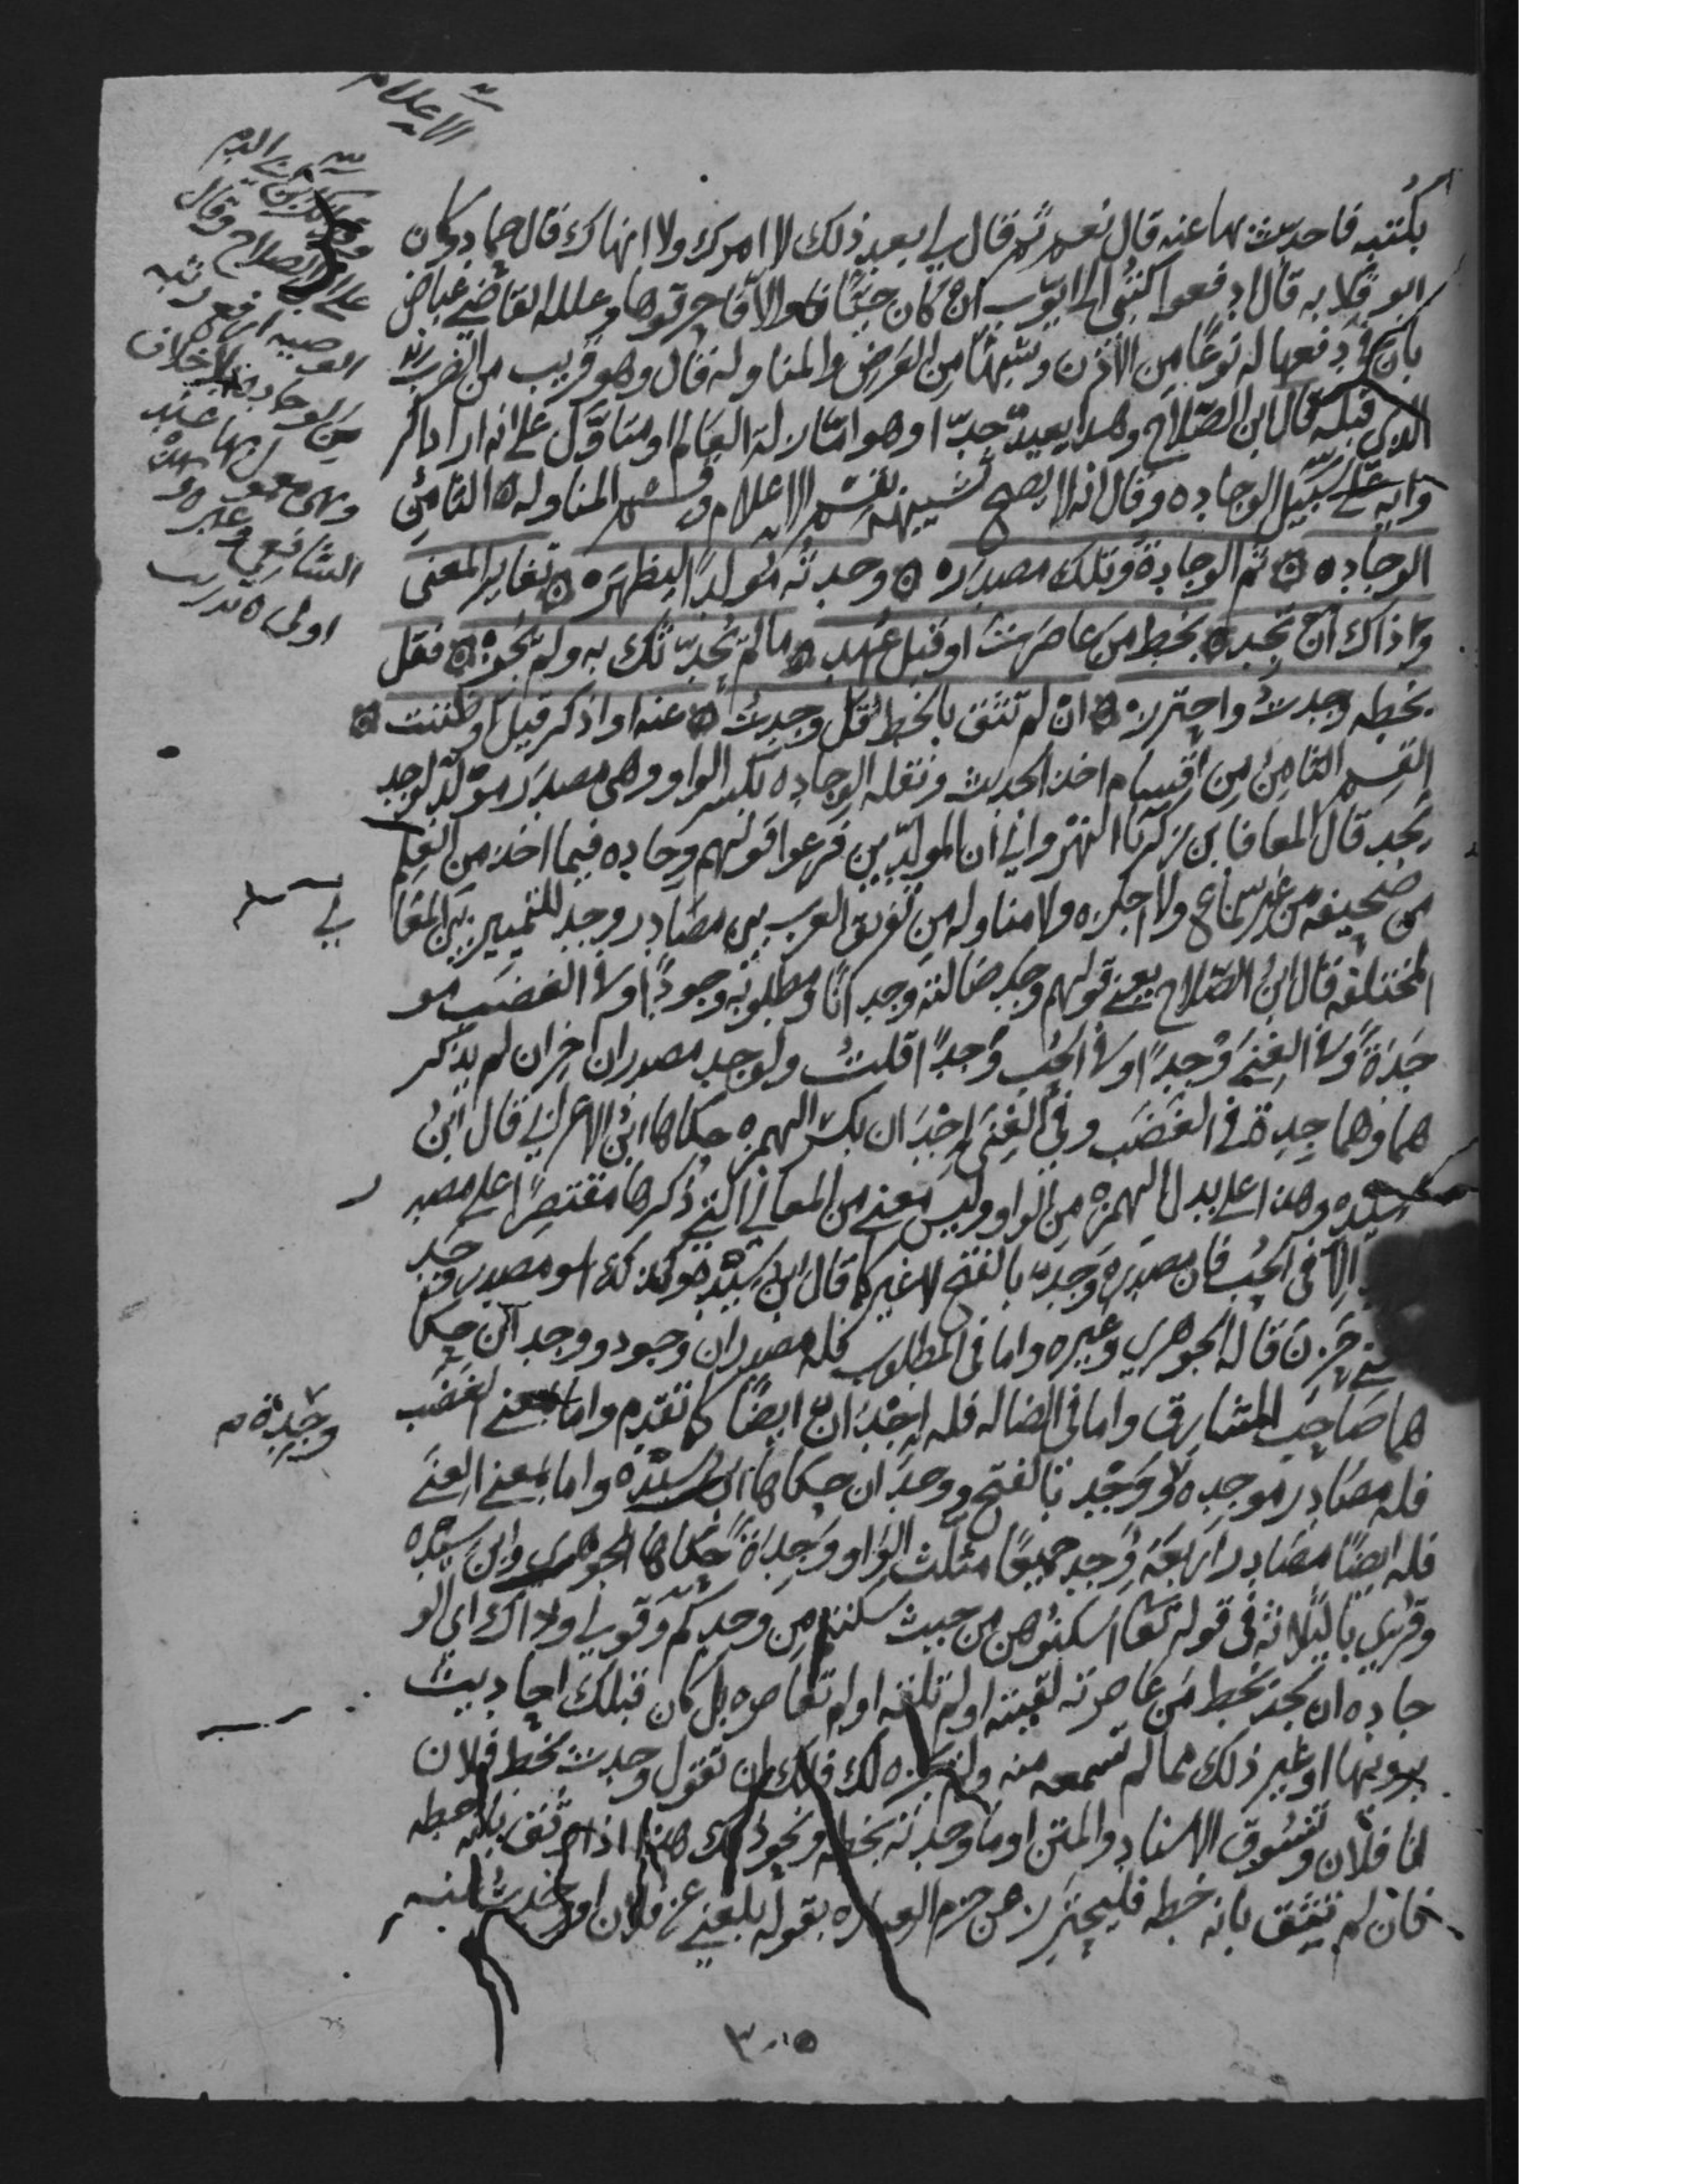 الاعلام
بكتبه فاحدث بها عنه قال نعم ثم قال لي بعد ذلك لا امرك ولا انهاك قال حماد وكان
ابو قلابه قال ادفعوا كتبي الى ايوب ان كان حيّا والا فاحرقوها وعلله القاضي عياض
بان في دفعها له نوعًا من الاذن وشبهًا من العرض والمناوله قال وهو قريب من الضرب
الذي قبله قال ابن الصّلاح وهذا بعيد جدّا وهو اما زلة العالم او متاوّل على انه اراد
وايه على سبيل الوجاده وقال انه لا يصح تشبيهه بقسم الاعلام وقسم المناوله الثامن
الوجاده ثم الوجادة وتلك مصدر وحدته مُولدًا ليظهر تغاير المعنى
وذاك ان تجد بخط من عاصرت او قبل عهد ما لم يحدّثك به ولم يجز فقل
بخطه وجدتُ واحترز ان لم تثق بالخط قل وجدتُ عنه او اذكر قيل او ظننت
القسم الثامن من اقسام اخذ الحديث ونقله الوجاده بكسر الواو وهي مصدر مولّد لوجد
يجد قال المعافا بن زكريّا النهرواني ان المولّدين فرعوا قولهم وجاده فيما اخذ من العلم
من صحيفه من غير سماع ولا اجازه ولا مناوله من تفريق العرب بين مصادر وجد للتمييز بين المعا
ني
المختلفه قال ابن الصّلاح يعني قولهم وجد ضالته وجدانًا ومطلوبه وجودًا وفي الغضب مو
جدة وفي الغنى وُجدًا وفي الحب وَجدًا قلتُ ولوجد مصدران اخران لم يذكر
هما وهما جدة في الغضب وفي الغنى واجدان بكسر الهمزه حكاها ابن الاعرابي قال ابن
سيده وهذا على بدل الهمزة من الواو وليس معنى من المعاني التي ذكرها مقتصرًا على مصد
ر
الا في الحب فان مصدره وَجد بالفتح لا غير كما قال ابن سيده وكذلك هو مصدر وجد
حَزِنَ قاله الجوهري وغيره واما في المطلوب فله مصدران وجود ووجدان حكا
هما صاحب المشارق واما في الضاله فله اجدان ايضًا كما تقدم واما بمعنى الغضب
فله مصادر موجده ووجد بالفتح ووجدان حكاها ابن سيده واما بمعنى الغنى
وجِدة
فله ايضًا مصادر اربعة وجد جميعًا مثلث الواو وجِدَة حكاها الجوهري وابن سيده
وقرئ بالثلاثه في قوله تعا اسكنوهن من حيث سكنتم من وجدكم وقولي وذاك اي الو
جاده ان تجد بخط من عاصرته لقيته او لم تلقه او لم تعاصره بل كان قبلك احاديث
يرويها او غير ذلك مما لم تسمعه منه ولم يجزه لك فلك ان تقول وجدت بخط فلان
انا فلان وتسوق الاسناد والمتن او ما وجدته بخطه ونحو ذلك هذا اذا وثق بانه خطه
فان لم تثق بانه خطه فليحترز عن جزم العباره بقوله بلغني عن فلان او وجدت عنه
على ابن الصلاح وقال
الوصيه ارفع رتبه
من الوجاده بلا خلاف
وهي معمول بها عند
الشافعي وغيره وهذا
اولى ه تدريب